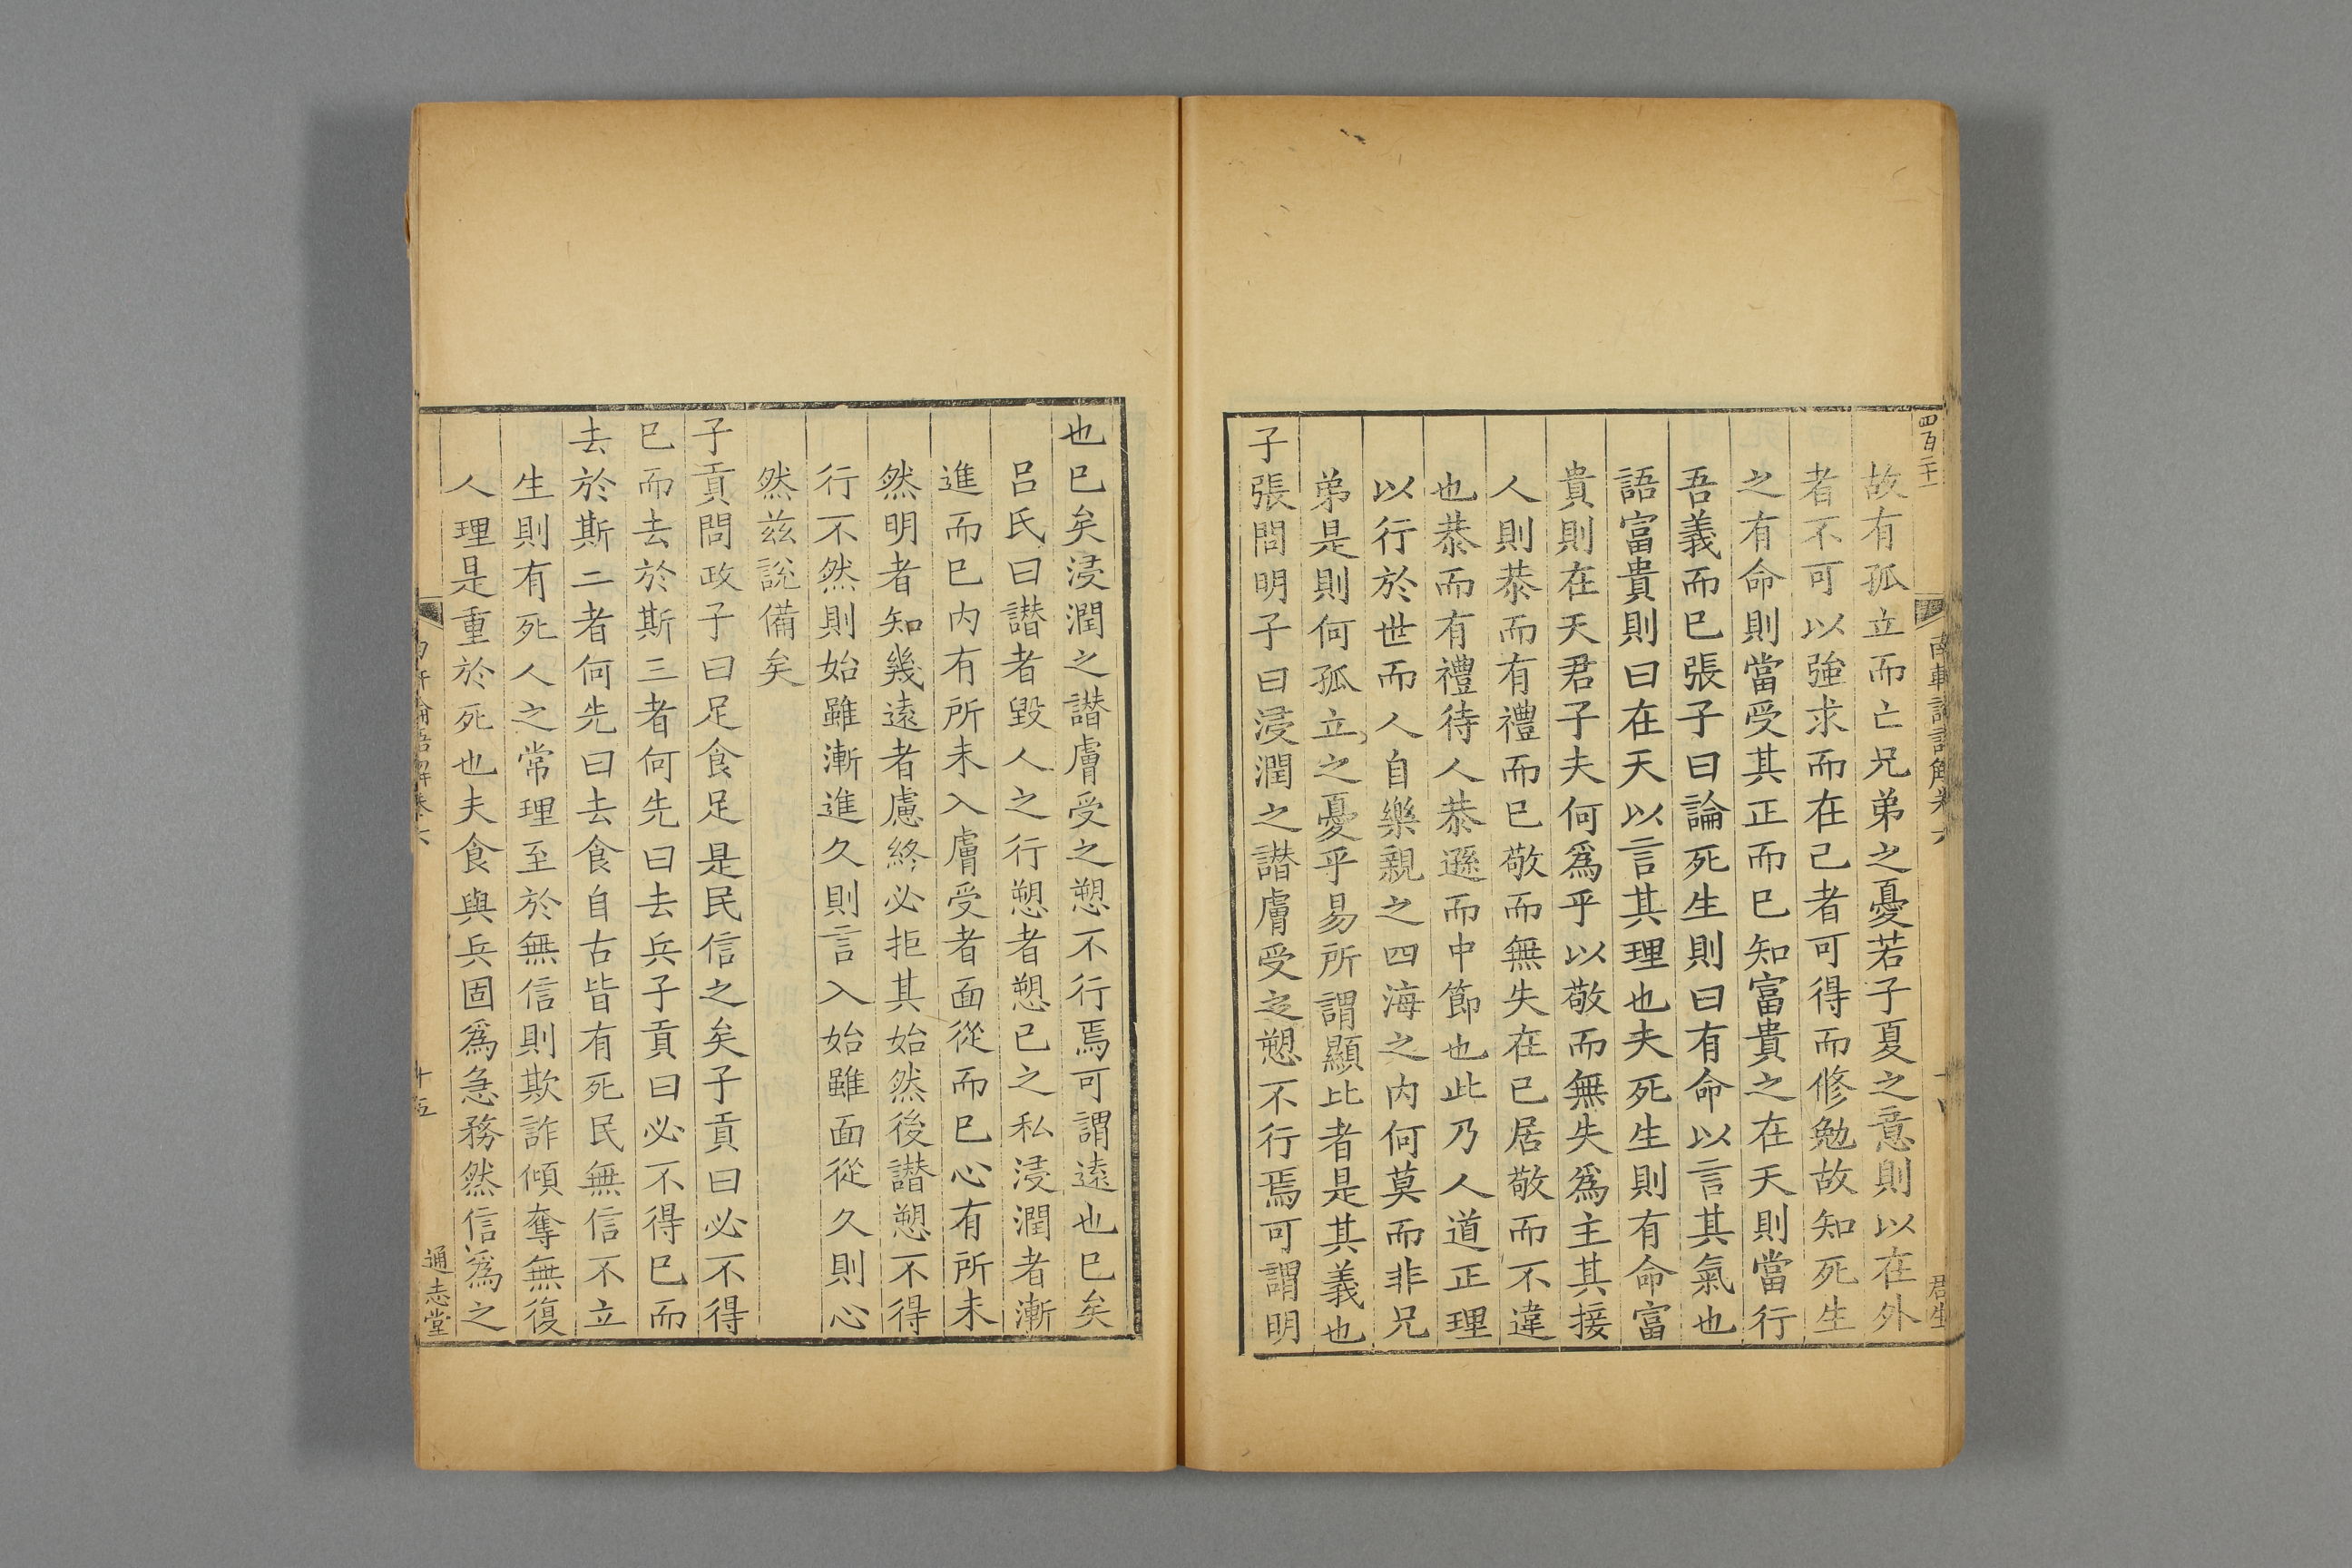 四百二十一
南軒論語解卷六
君生
故有孤立而亡兄弟之憂若子夏之意則以在外
者不可以強求而在己者可得而修勉故知死生
之有命則當受其正而已知富貴之在天則當行
吾義而已張子曰論死生則曰有命以言其氣也
語富貴則曰在天以言其理也夫死生則有命富
貴則在天君子夫何爲乎以敬而無失爲主其接
人則恭而有禮而已敬而無失在已居敬而不違
也恭而有禮待人恭遜而中節也此乃人道正理
以行於世而人自樂親之四海之內何莫而非兄
弟是則何孤立之憂乎易所謂顯比者是其義也
子張問明子曰浸潤之譖膚受之愬不行焉可謂明
也已矣浸潤之譖膚受之愬不行焉可謂遠也已矣
呂氏曰譖者毀人之行愬者愬已之私浸潤者漸
進而已內有所未入膚受者面從而已心有所未
然明者知幾遠者慮終必拒其始然後譖愬不得
行不然則始雖漸進久則言入始雖面從久則心
然茲說備矣
子貢問政子曰足食足足是民信之矣子貢曰必不得
已而去於斯三者何先曰去兵子貢曰必不得已而
去於斯二者何先曰去食自古皆有死民無信不立
生則有死人之常理至於無信則欺詐傾奪無復
人理是重於死也夫食與兵固爲急務然信爲之
論語解卷六
十五
通志堂